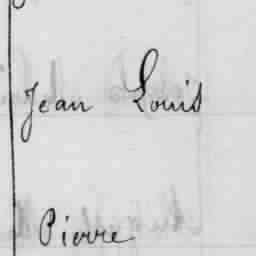 Jean Louis
Pierre